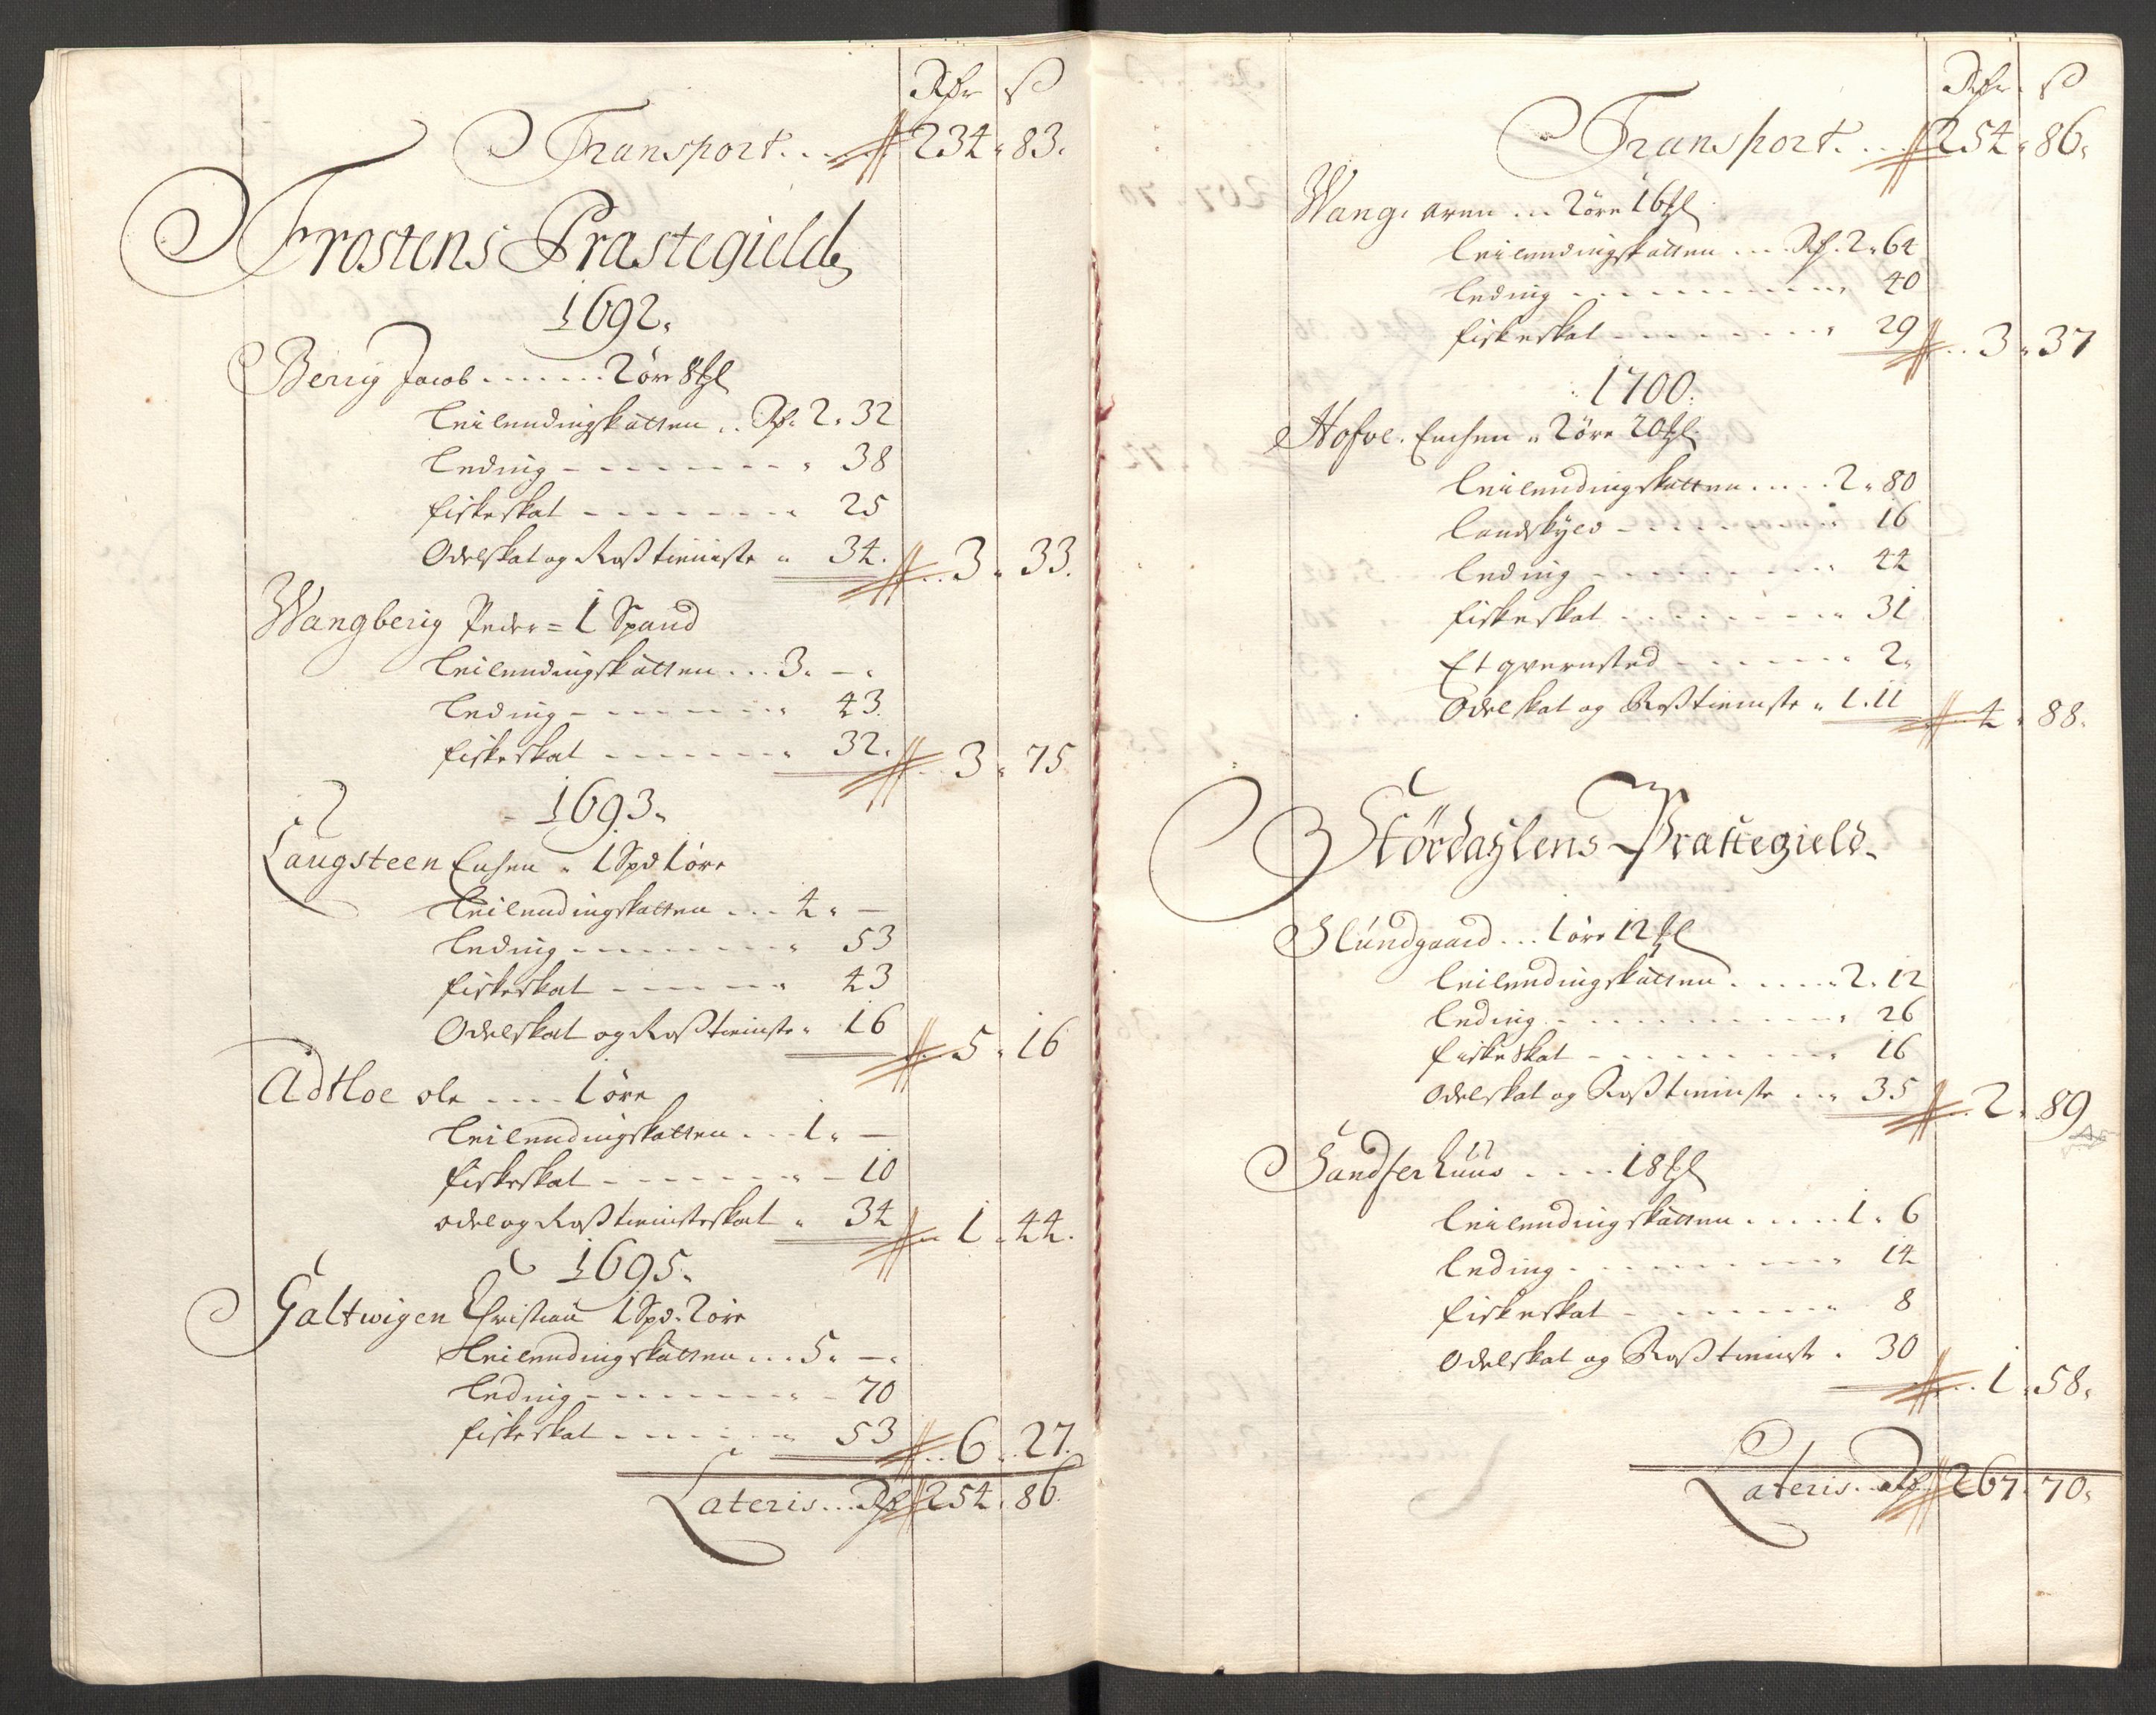 Rdr ß
Transport.... 234 " 83.
Frostens Prastegield
1692.
Berrig Jacob ....... 2 öre 8 tt
Leilendingskatten .. Rdr 2 " 32
Leding - - - - - - - " 38
fiskeskat - - - - - - - " 25
Odelskat og Roßtienniste " 34. ... 3 " 33.
Wangberrig Peder = 1 Spand
Leilendingskatten ... 3. - "
Leding - - - - - - - " 43.
fiskeskat - - - - - - " 32. ... 3 " 75
1693.
Laugsteen Ensen " 1 Spd 1 öre
Leilendingskatten .... 4 " —
Leding - - - - - - - " 53
fiskeskat - - - - - " 43
Odelskat og Roßtieniste " 16 ... 5 " 16
Adtloe ole ..... 1 öre
Leilendingskatten .... 1 " —
fiskeskat - - - - - - - " - 10
odel og Roßtienisteskat " 34 ... 1 " 44.
1695.
Galtwigen Christian 1 Spd. 2 öre
Leilendingskatten ... 5 " - "
Leding - - - - - - - " - 70
fiskeskat - - - - - - " 53 ... 6 " 27.
Lateris... Rdr 254 " 86.
Rdr ß
Transport .... 254 " 86 "
Wang. Aren ... 2 öre 16 tt
Leilendingskatten .... Rdr. 2 " 64
Leding - - - - - - - - - " 40
fiskeskat - - - - - - - - " 29 ... 3 " 37
1700.
Hofve. Ensen " 2 öre 20 tt
Leilendingskatten ..... 2 " 80
Landskyld - - - - - - " 16
Leding - - - - - - - - " 44
fiskeskat - - - - - - - " 31
Et qvernsted - - - - - " 2 "
Odelskat og Roßtieniste " 1. 11 ... 4 " 88.
Stördahlens Prastegield.
Hlundgaard ... 1 öre 12 tt
Leilendingskatten ...... 2. 12
Leding - - - - - - - - - " 26
fiskeskat - - - - - - - - " 16
Odelskat og Roßtieniste ... " 35 ... 2 " 89
Sandferhuus ..... 18 tt
Leilendingskatten ..... 1 " 6
Leding - - - - - - - - " 14
fiskeskat - - - - - - - " 8
Odelskat og Roßtieniste " 30 ... 1 " 58 "
Lateris. Rdr 267 " 70 "